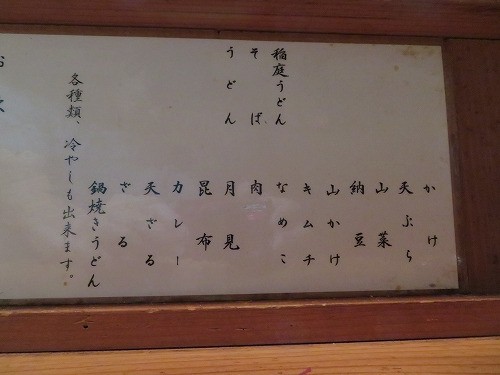 稲庭うどん
そば
うどん
かけ
天ぷら
山菜
納豆
山かけ
キムチ
なめこ
肉
月見
昆布
カレー
天ざる
ざる
鍋焼きうどん
各種類、冷やしも出来ます。